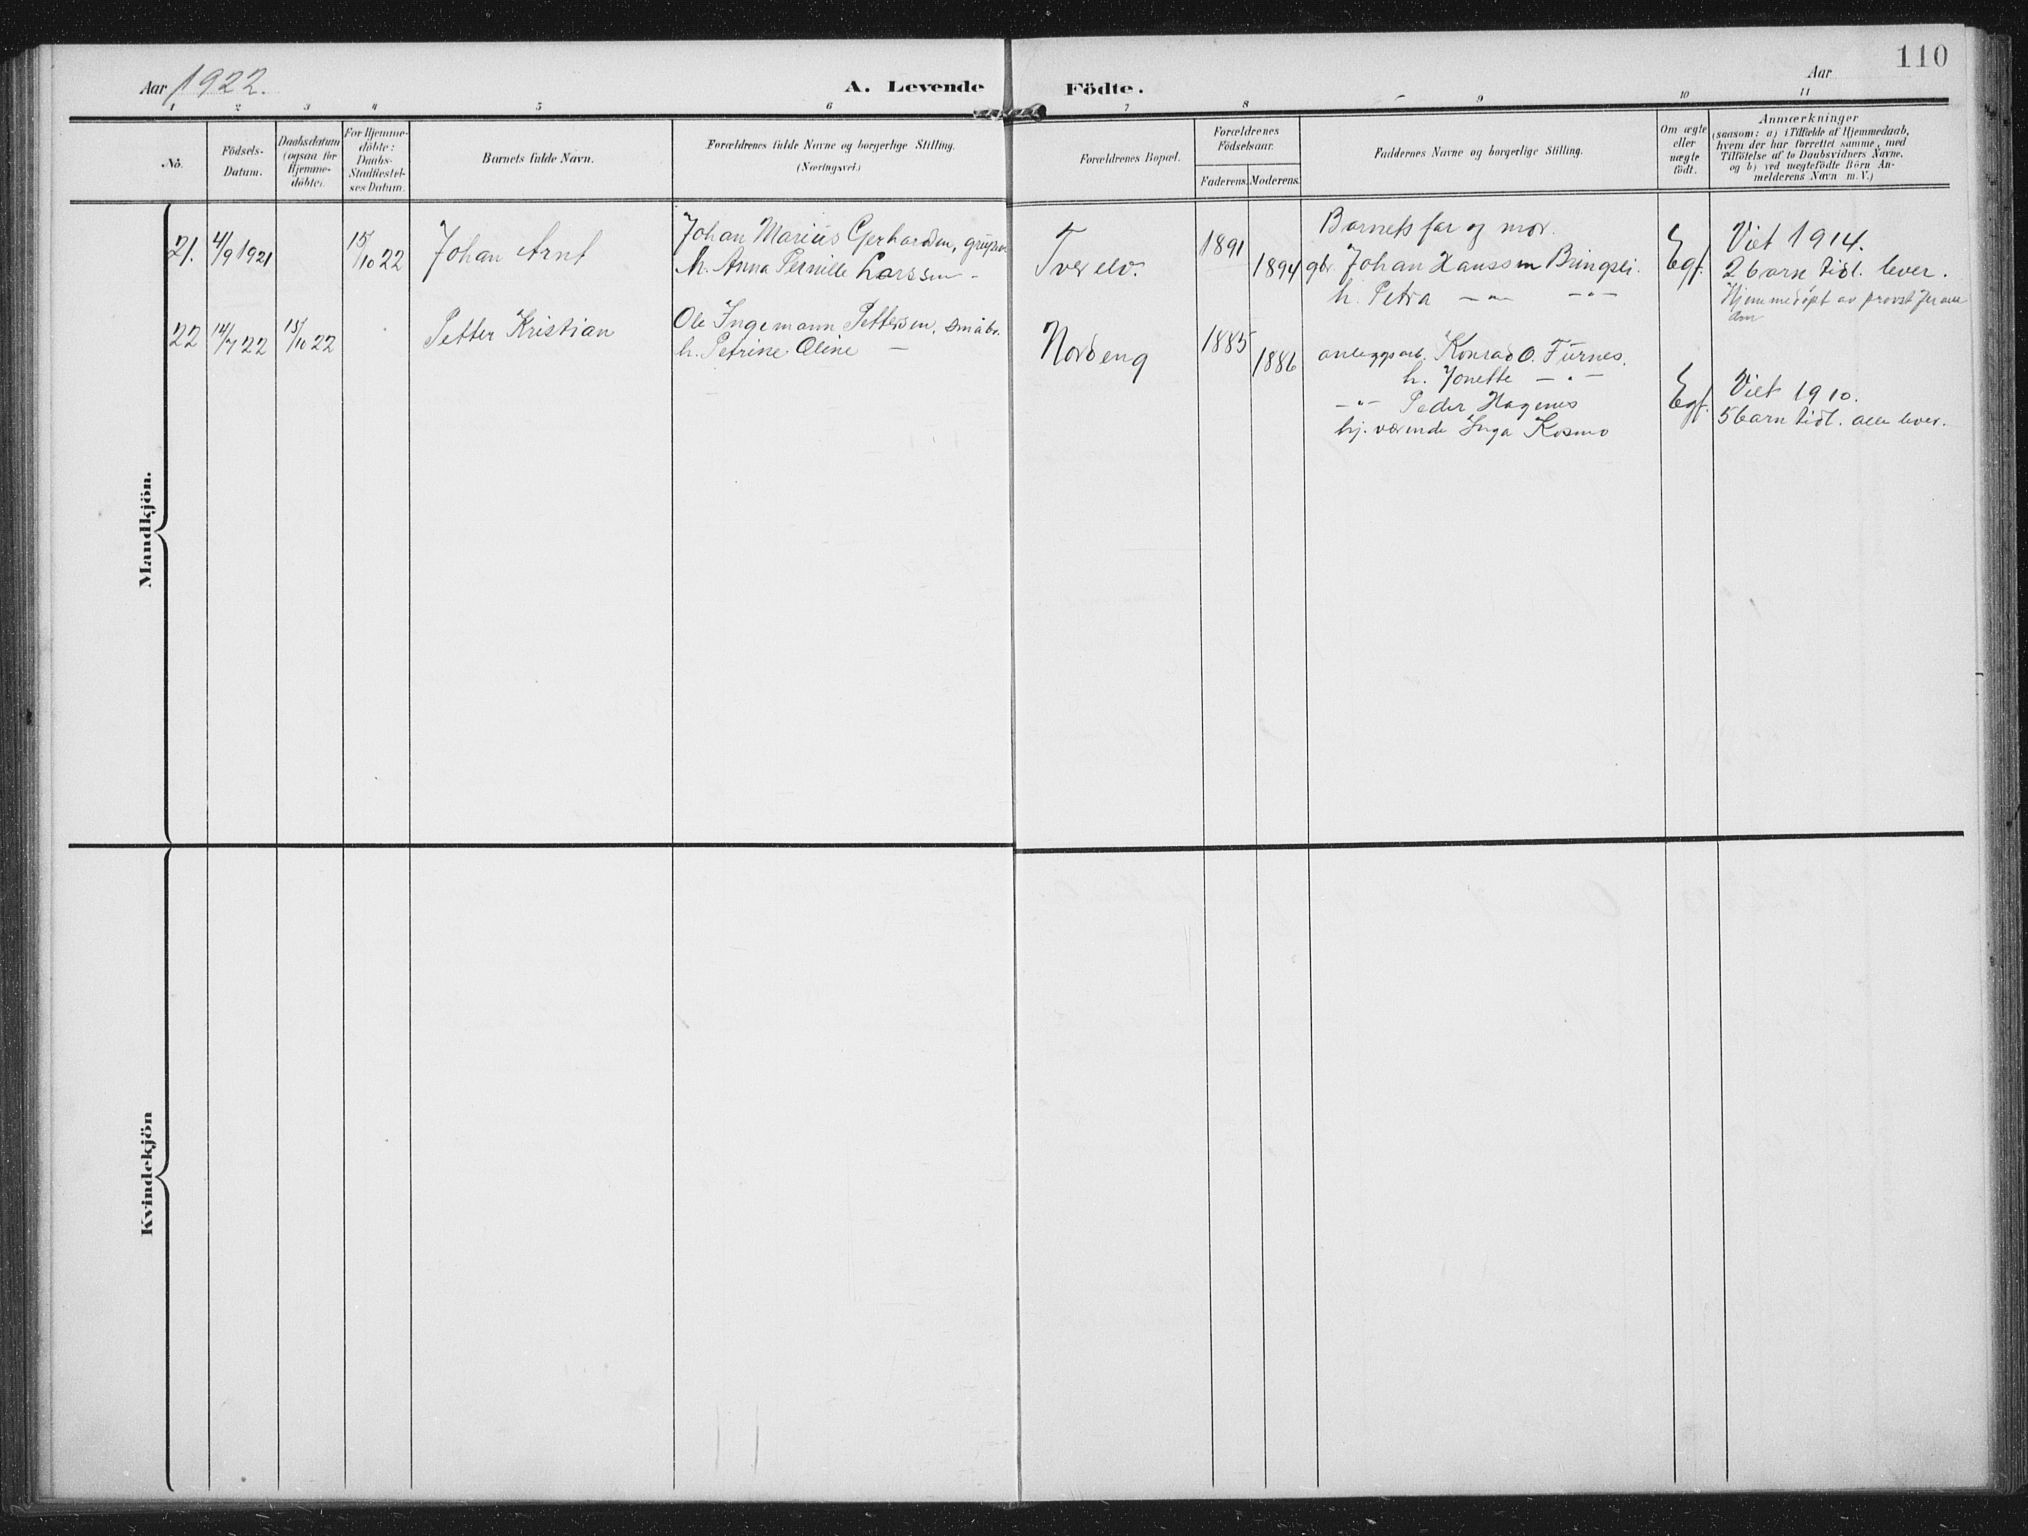 110
Aar 1922.
A. Levende Födte.
Aar
1 2 3 4 5 6 7 8 9 10 11
No.
Födsels-
Datum.
Daabsdatum
(ogsaa for
Hjemme-
döbte).
For Hjemme-
döbte:
Daabs-
Stadfæstel-
ses Datum.
Barnets fulde Navn.
Forældrenes fulde Navne og borgerlige Stilling.
(Næringsvei.)
Forældrenes Bopæl.
Forældrenes
Födselsaar.
Faderens.
Moderens.
Faddernes Navne og borgerlige Stilling.
Om ægte
eller
uægte
födt.
Anmærkninger
(saasom: a) i Tilfælde af Hjemmedaab,
hvem der har forrettet samme, med
Tilföielse af to Daabsvidners Navne,
og b) ved uægtefödte Börn An-
melderens Navn m. V.)
Mandkjön.
21.
4/9 1921
15/10 22
Johan Arnt
Johan Marius Gerhardsen,
h. Anna Pernille Larssen -
Tverelv.
1891
1894
Barnets far og mor.
gbr. Johan Hanssen Bringsli.
h. Petra -"- -"-
Egt.
Viet 1914.
2 barn tidl. lever.
Hjemmedöpt av provst
22
14/7 22
15/10 22
Petter Kristian
Ole Ingemann Pettersen, småbr.
h. Petrine Oline -
Nordeng
1885
1886
anleggsarb. Konrad O. Furnes.
h. Jonette -"-
-"- Peder Hagenes
hj. værende Inga Kosmo
Egt.
Viet 1910.
5 barn tidl. alle lever.
Kvindekjön